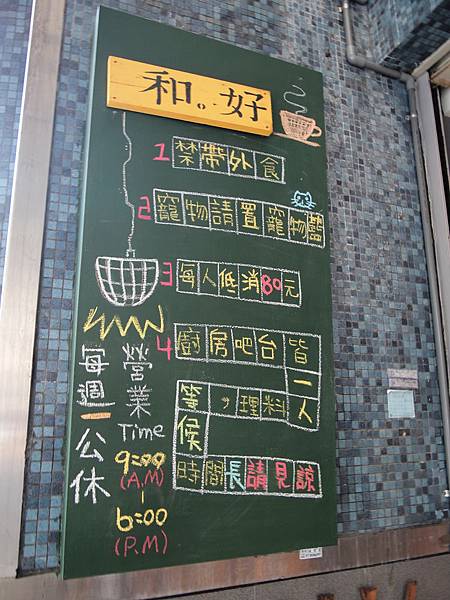 和。好
1 禁帶外食
2 寵物請置寵物籃
3 每人低消80元
4 廚房吧台皆
一
人料理,等
候
時間長請見諒
營業
Time
9:00
(A.M)
|
6:00
(P.M)
每週一公休